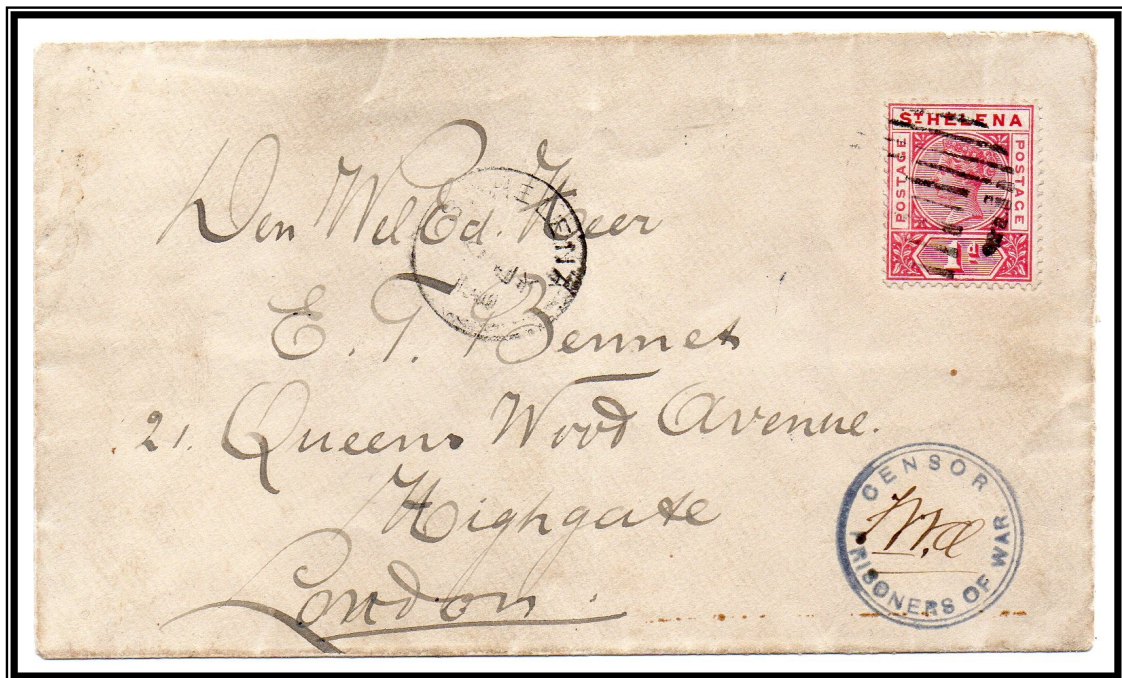 ST HELENA
POSTAGE
POSTAGE
1d
Den Wel Ed. Heer
ST HELENA
E. T. Bennet
21. Queens Wood Avenue.
Highgate
London.
CENSOR
PRISONERS OF WAR